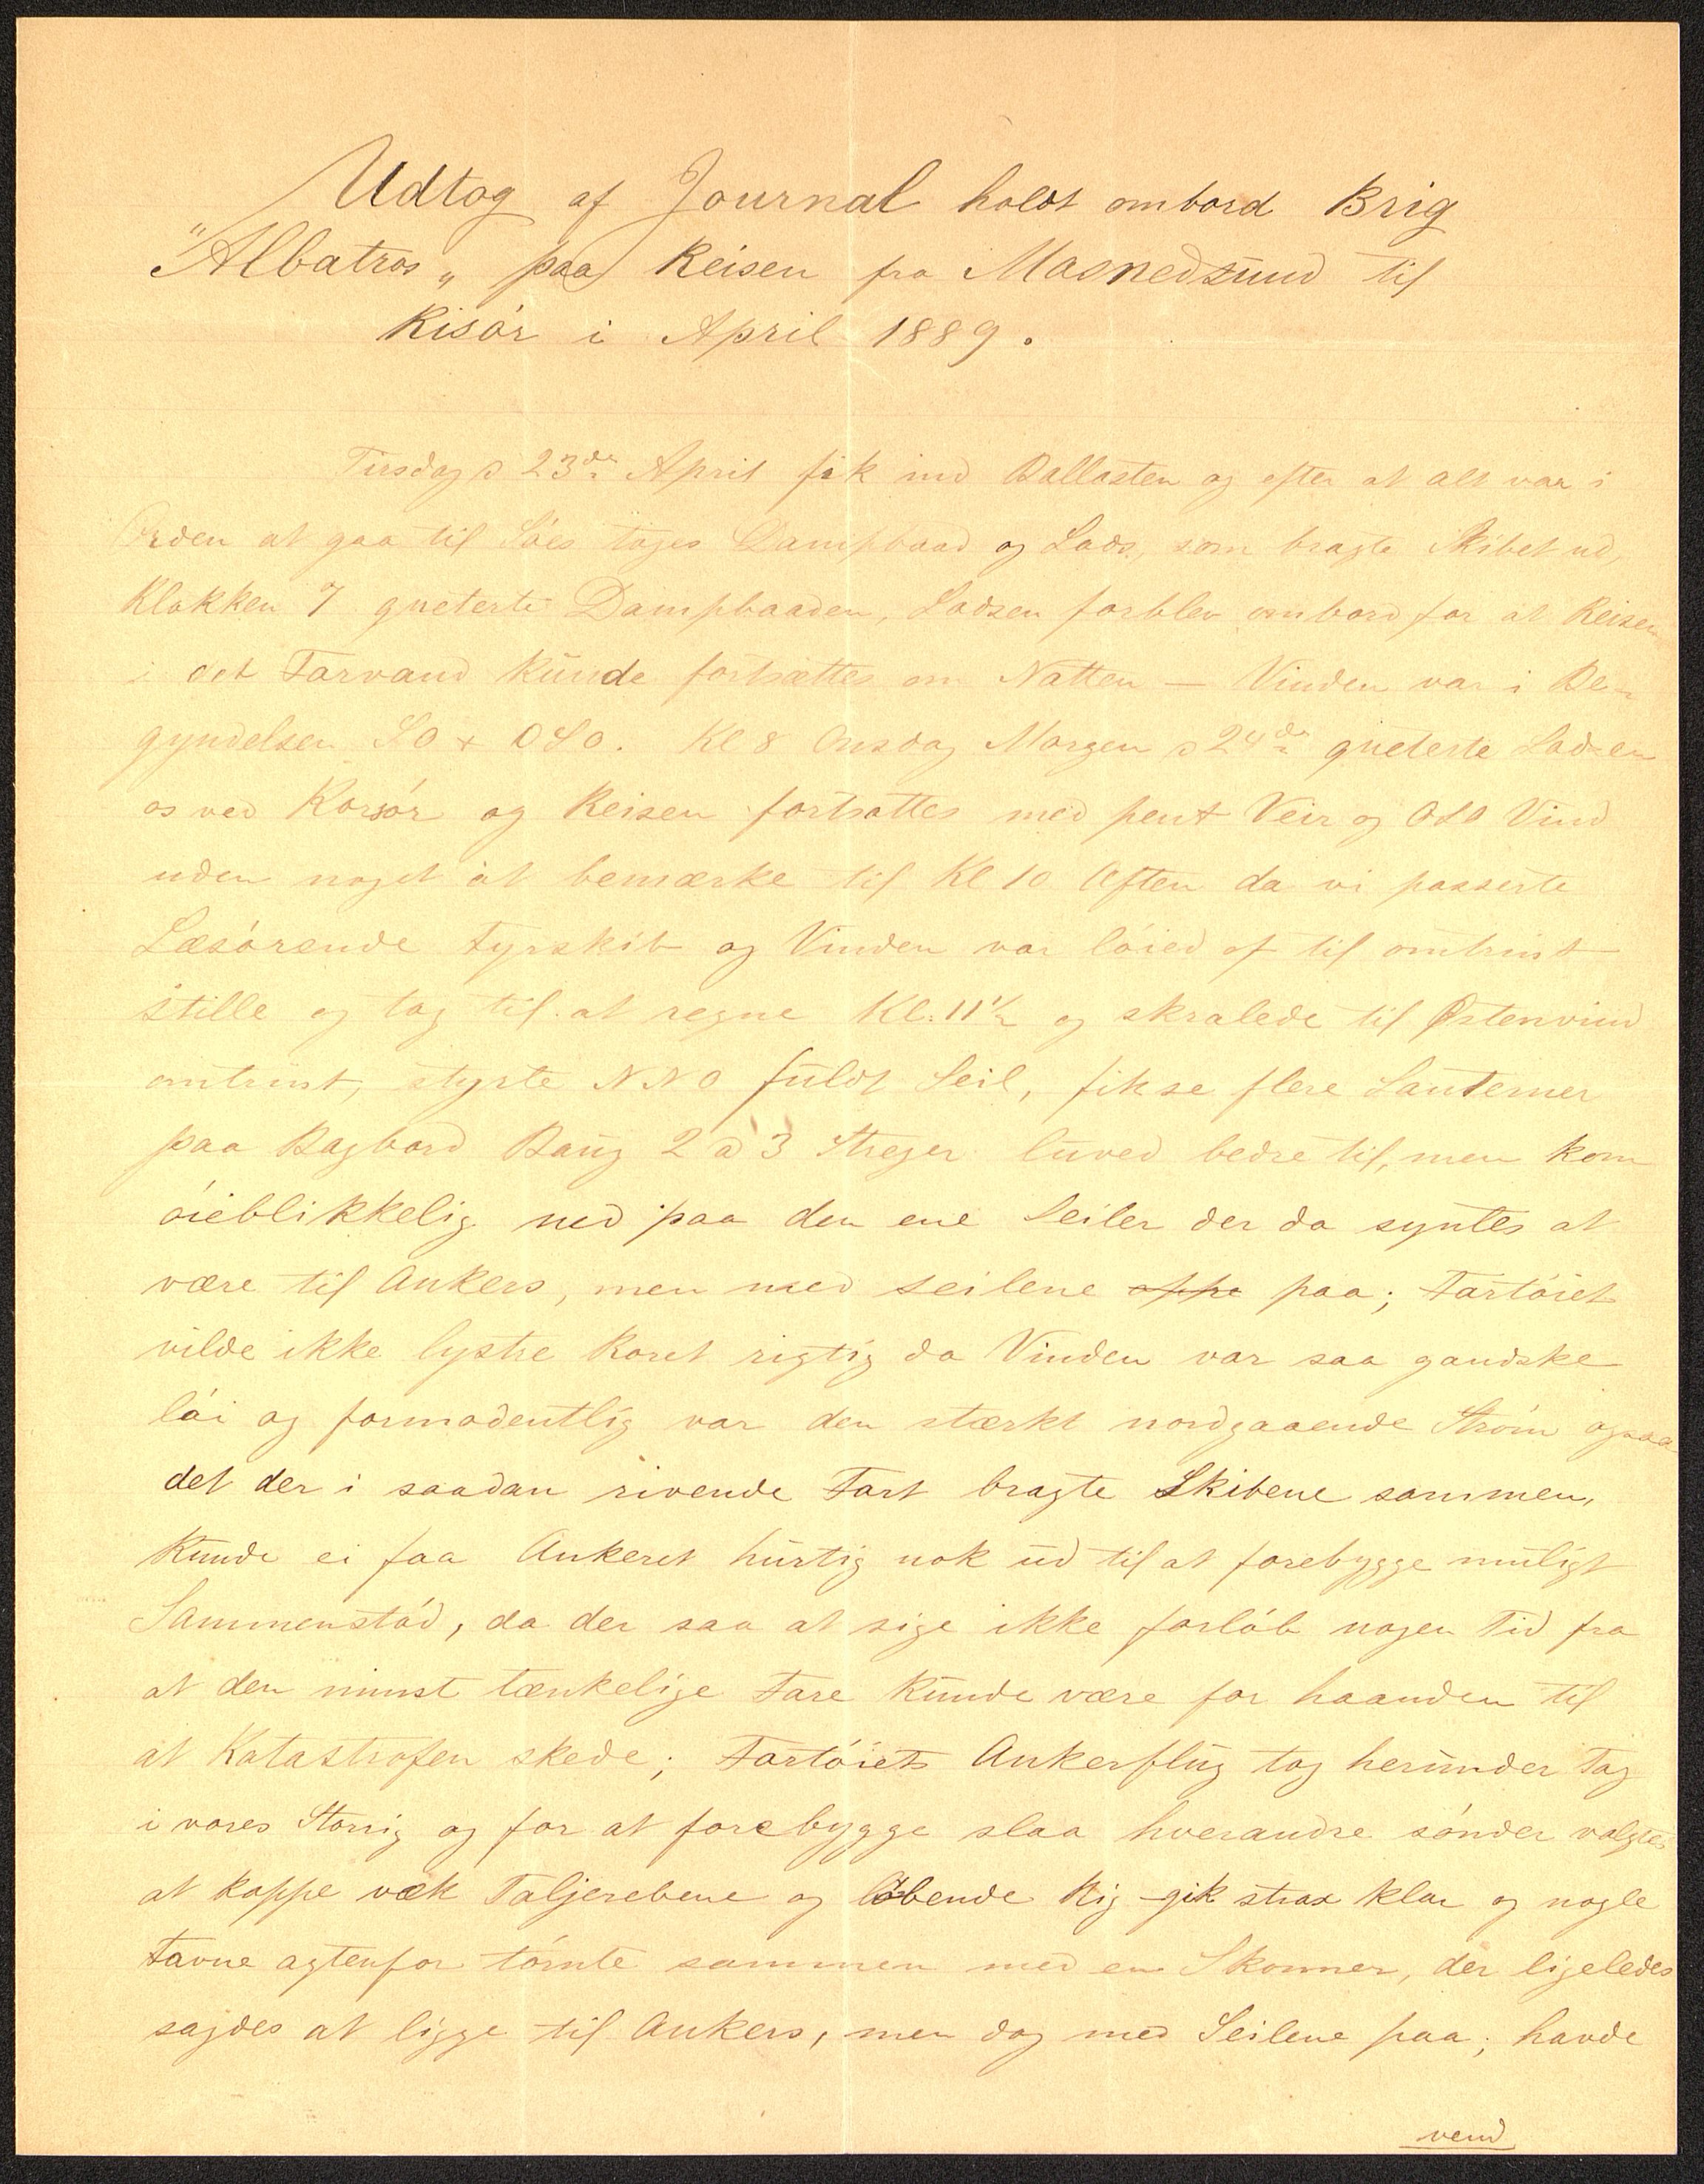 Udtog af Journal holdt ombord Brig
"Albatros„ paa Reisen fra Masnedsund til
Risór i April 1889.
Tirsdag d 23de April fik ind Ballasten og efter at alt var i
Orden at gaa til Sóes toges Dampbaad og Lods, som bragte Skibet ud,
Klokken 7 qveterte Dampbaaden, Lodsen forblev ombord for at Reisen
i det Farvand kunde fortsættes om Natten — Vinden var i Be-
gyndelsen SO + OSO. Kl 8 Onsdag Morgen d 24de qveterte Lodsen
os ved Korsór og Reisen fortsattes med pent Veir og OSO Vind
uden noget at bemærke til Kl 10 Aften da vi passerte
Læsórende Fyrskib og Vinden var lóied af til omtrent
stille og tog til at regne Kl. 11½ og skralede til Østenvind
omtrent, styrte NNO fuldt Seil, fik se flere Lanterner
paa Bagbord Baug 2 à 3 Streger luved bedre til, men kom
óieblikkelig ned paa den ene Seiler der da syntes at
være til Ankers, men med seilene oppe paa; Fartóiet
vilde ikke lystre Roret rigtig da Vinden var saa gandske
lói og formodentlig var den stærkt nordgaaende Stróm ogsaa
det der i saadan rivende Fart bragte Skibene sammen,
Kunde ei faa Ankeret hurtig nok ud til at forebygge muligt
Sammenstód, da der saa at sige ikke forlób nogen Tid fra
at den minst tænkelige Fare kunde være for haanden til
at Katastrofen skede; Fartóiets Ankerflug tog herunder Tag
i vores Storrig og for at forebygge slaa hverandre sónder valgtes
at kappe væk Taljerebene og lóbende Rig gik strax klar og nogle
Favne agtenfor tórnte sammen med en Skonner, der ligeledes
sagdes at ligge til Ankers, men dog med Seilene paa; havde
vend